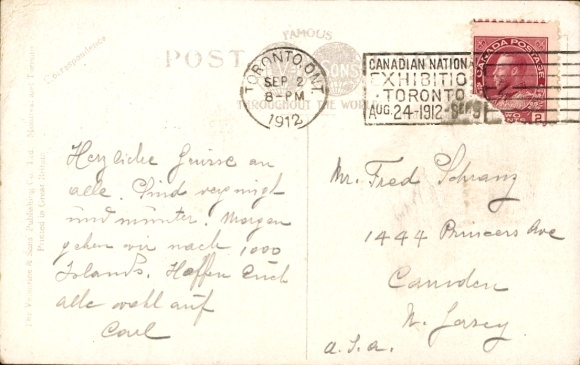 Correspondence
FAMOUS
POST
SONS
THROUGHOUT THE WORLD
The Valentine & Sons Publishing Co., Ltd. Montreal and Toronto
Printed in Great Britain
TORONTO, ONT.
SEP 2
8-PM
1912
CANADIAN NATIONA
EXHIBITIO
TORONTO
AUG. 24-1912-SEP 9
CANADA POSTAGE
2
Herzliche Grüsse an
alle. Sind vergnügt
und munter. Morgen
gehen wir nach 1000
Islands. Hoffen Euch
alle wohl auf
Carl
Mr. Fred Schranz
1444 Princess Ave
Camden
N. Jersey
U.S.A.